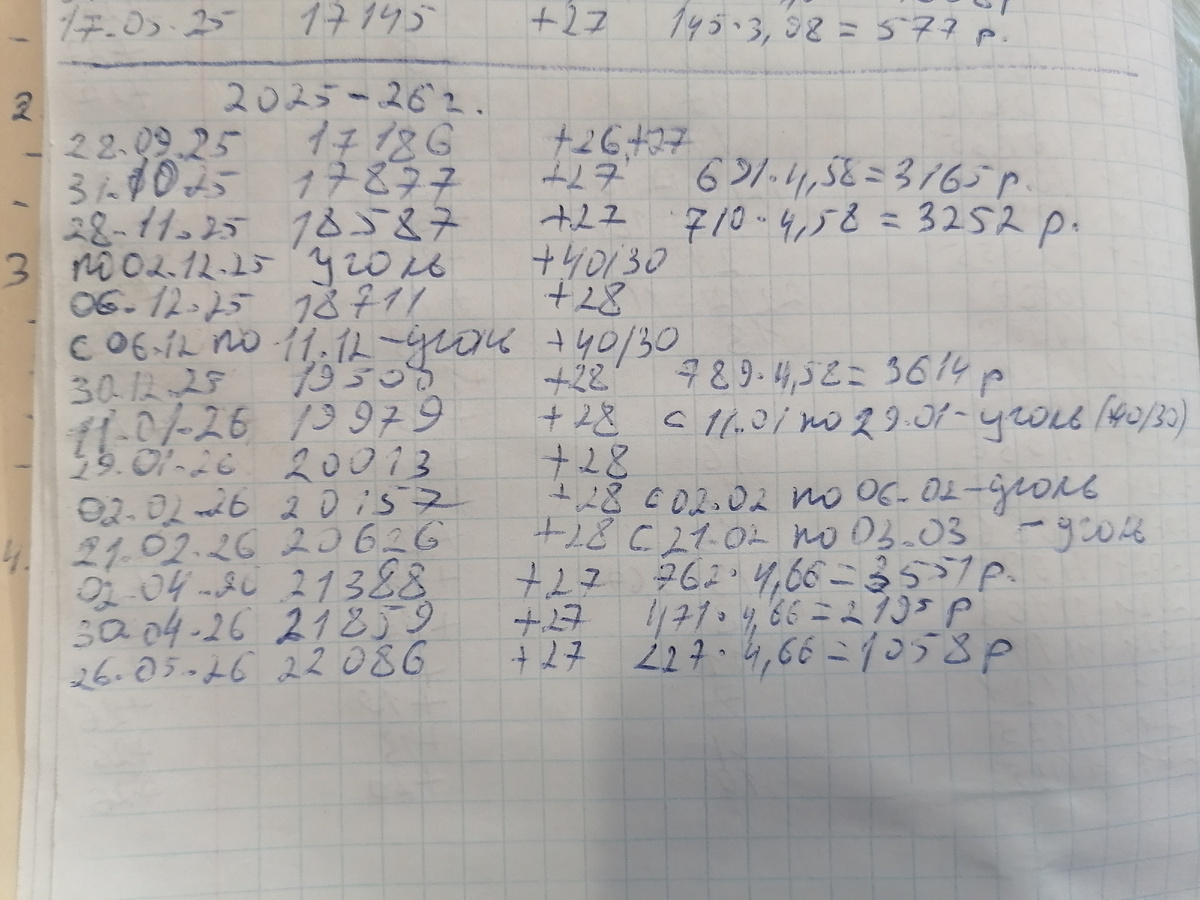 17.05.25 17145 +27 145·3,98 = 577 р.
2025-26 г.
28.09.25 17186 +26,+27
31.10.25 17877 +27 691·4,58 = 3165 р.
28.11.25 18587 +27 710·4,58 = 3252 р.
по 02.12.25 уголь +40/30
06.12.25 18711 +28
с 06.12 по 11.12 - уголь +40/30
30.12.25 19500 +28 789·4,58 = 3614 р
11.01.26 19979 +28 с 11.01 по 29.01 - уголь (+40/30)
29.01.26 20013 +28
02.02.26 20157 +28 с 02.02 по 06.02 - уголь
21.02.26 20626 +28 с 21.02 по 03.03 - уголь
02.04.26 21388 +27 762·4,66 = 3551 р.
30.04.26 21859 +27 471·4,66 = 2195 р
26.05.26 22086 +27 227·4,66 = 1058 р
2.
3
4.